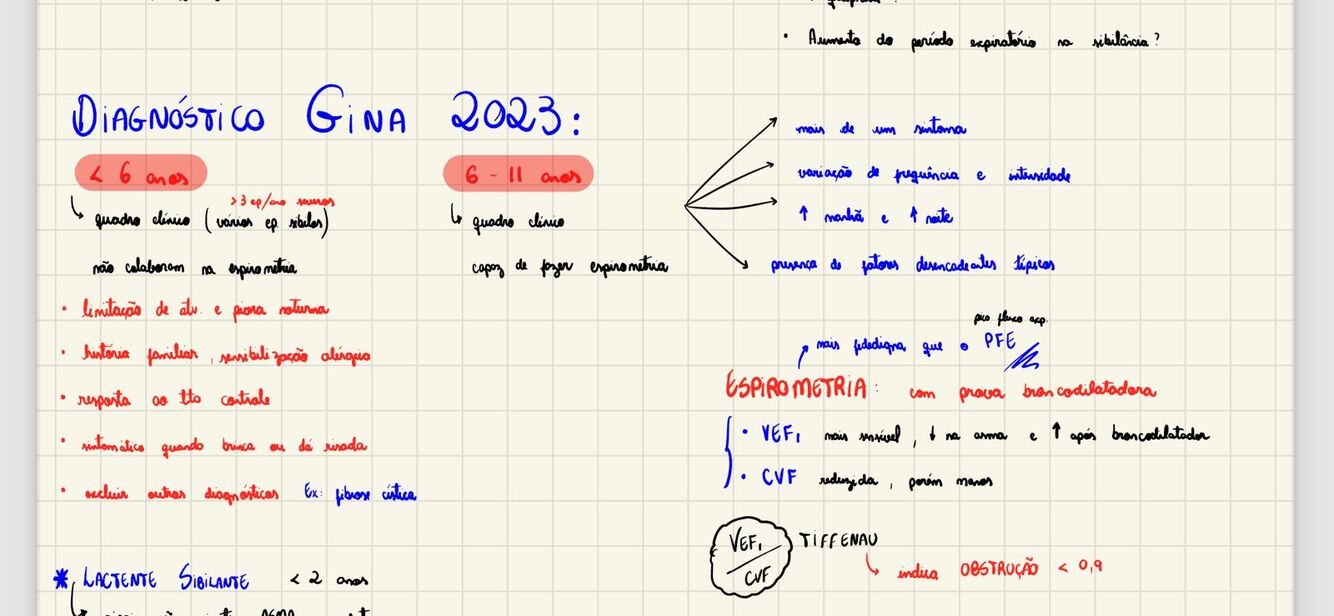 • Aumento do período expiratório na sibilância?
DIAGNÓSTICO GINA 2023:
< 6 anos
> 3 ep/ano
↳ quadro clínico (vários ep. sibilos)
não colaboram na espirometria
• limitação de ativ. e piora noturna
• história familiar, sensibilização alérgica
• resposta ao tto controle
• sintomático quando brinca ou dá risada
• excluir outros diagnósticos Ex: fibrose cística
* LACTENTE SIBILANTE < 2 anos
6 - 11 anos
↳ quadro clínico
capaz de fazer espirometria
mais de um sintoma
variação de frequência e intensidade
↑ manhã e ↑ noite
presença de fatores desencadeantes típicos
pico fluxo exp.
mais fidedigna que o PFE
ESPIROMETRIA: com prova broncodilatadora
• VEF₁ mais sensível, ↓ na asma e ↑ após broncodilatador
• CVF reduzida, porém menos
VEF₁
CVF
TIFFENAU
↳ indica OBSTRUÇÃO < 0,9